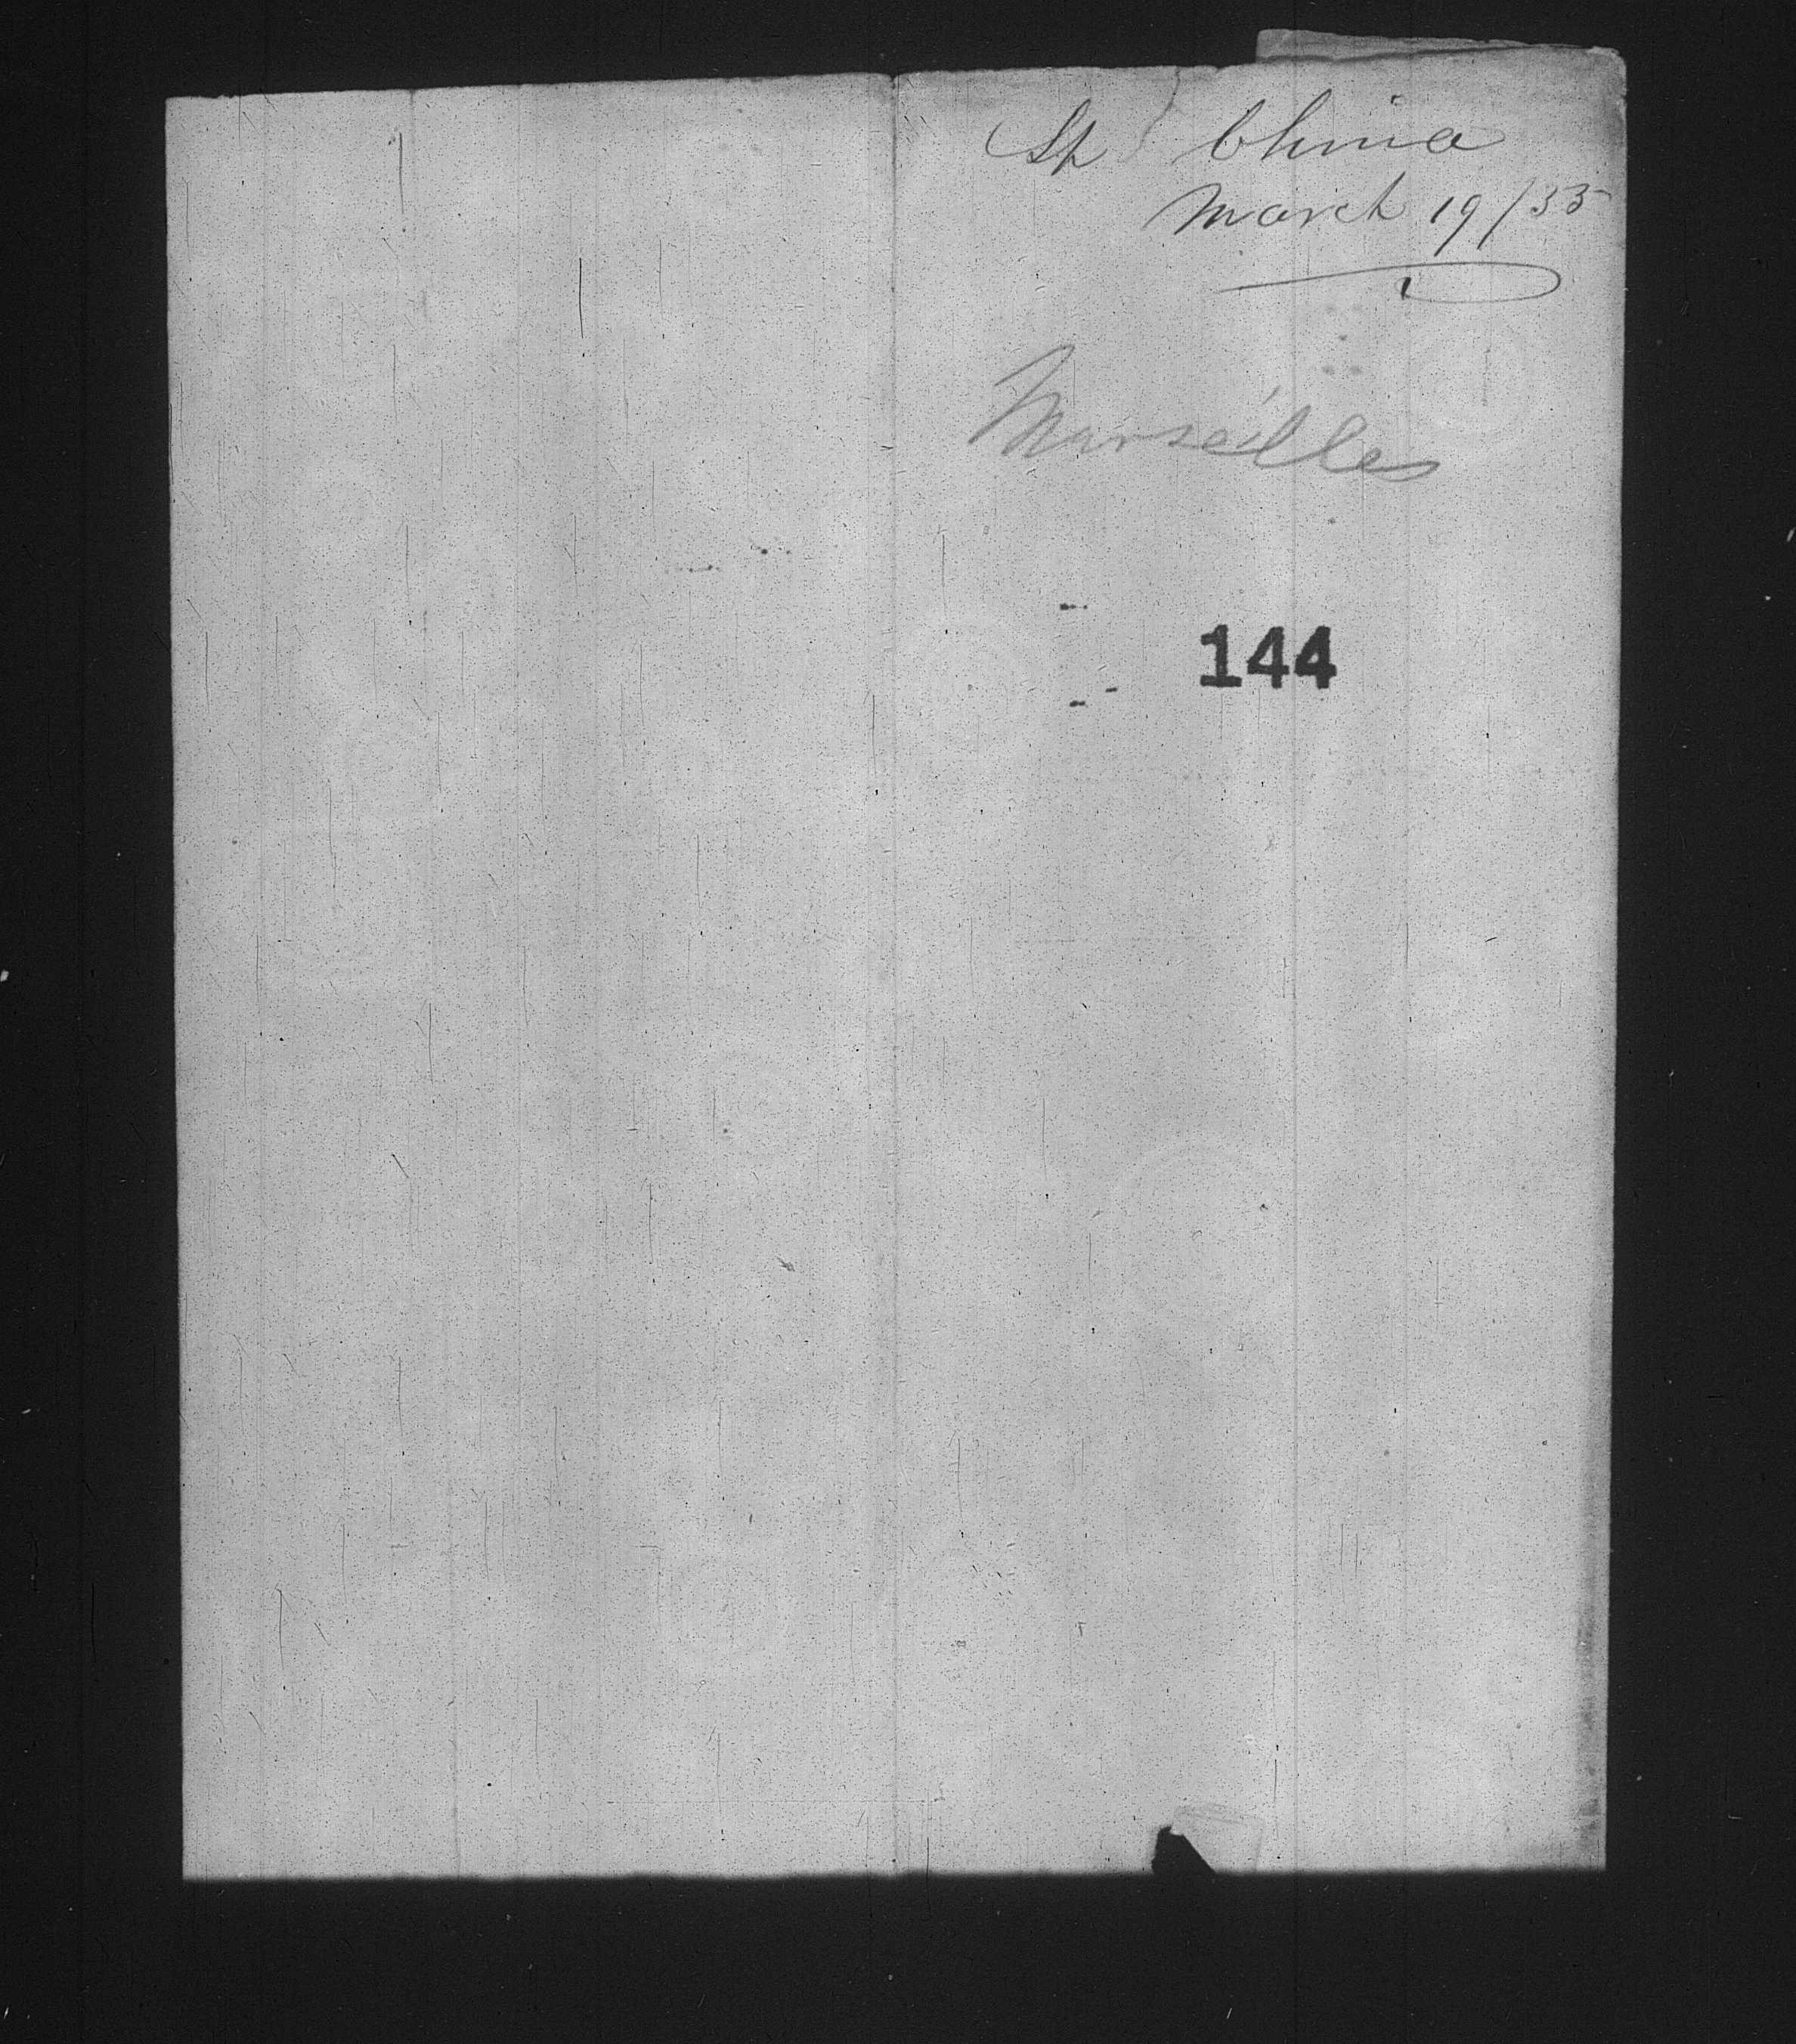 Sh China
March 19/33
Marseilles
144